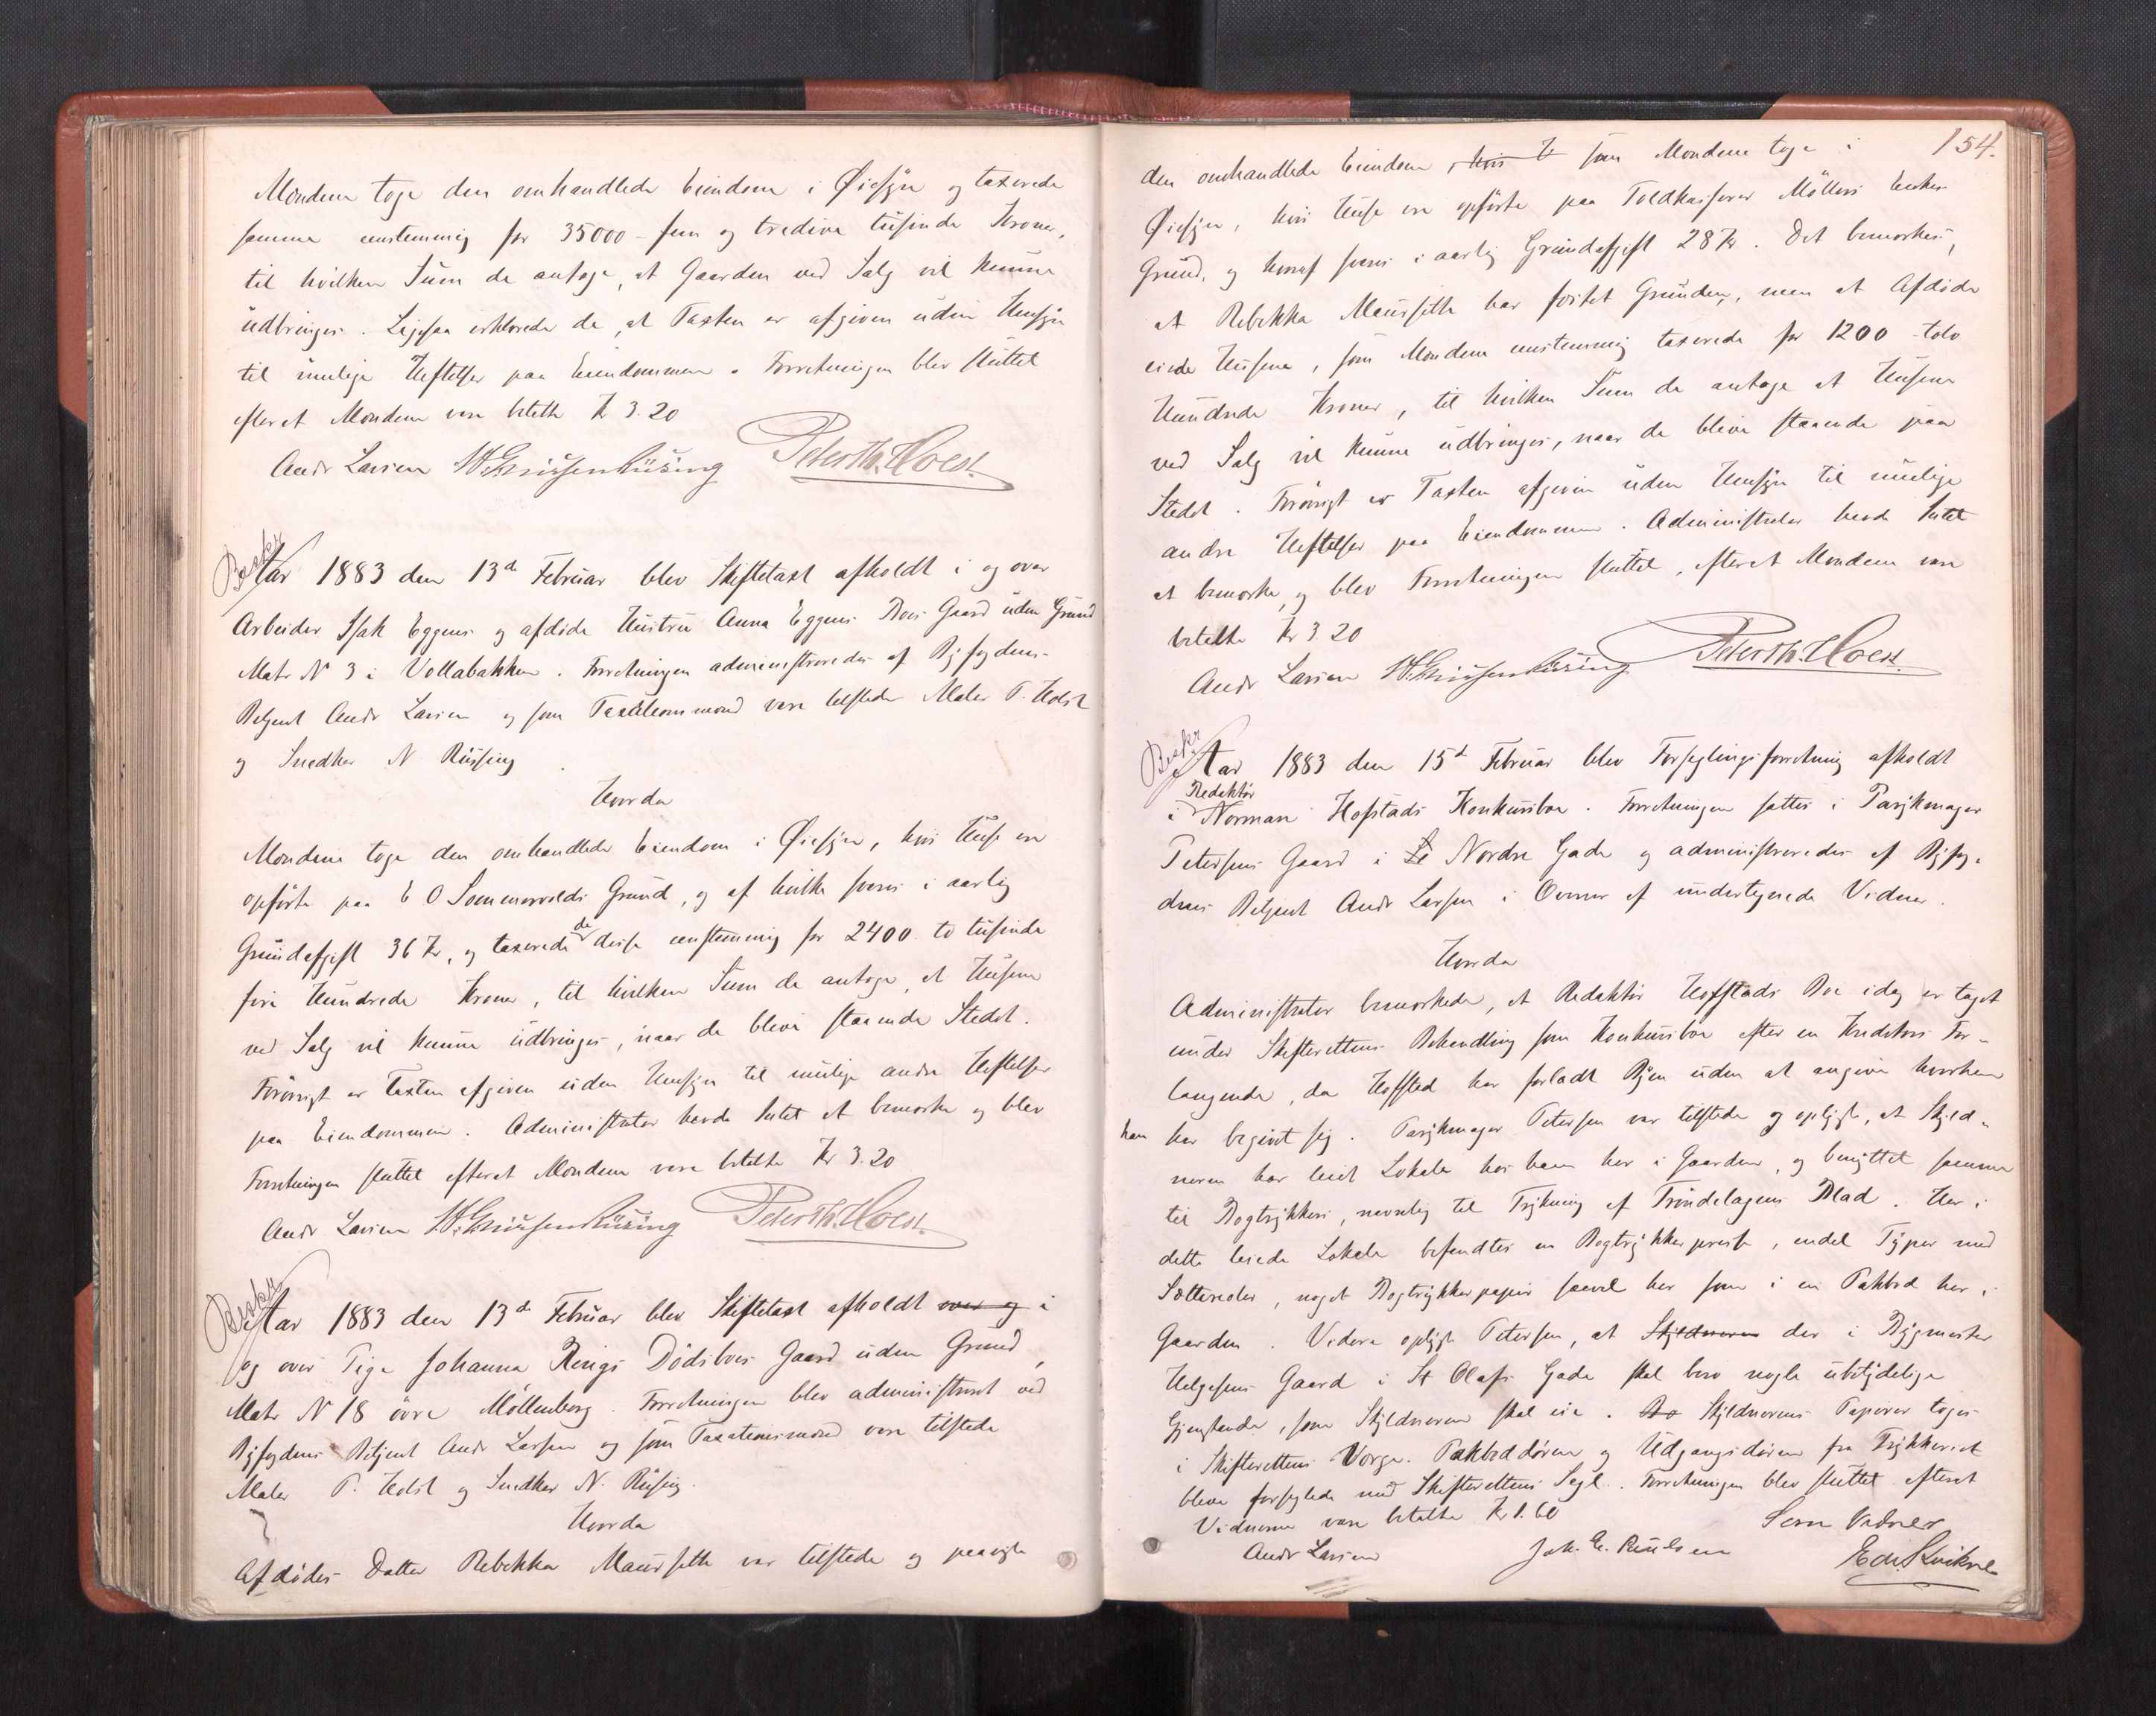 Mændene toge den omhandlede Eiendom i Øiesyn og taxerede
samme enstemmig for 35000 - fem og tredive tusinde Kroner,
til hvilken Sum de antoge, at Gaarden ved Salg vil kunne
udbringes. Ligesaa erklærede de, at Taxten er afgiven uden Hensyn
til mulige Heftelser paa Eiendommen. Forretningen blev sluttet
efterat Mændene vare betalte Kr 3.20
Andr Larsen Peter Th. Holst.
Beskr
Aar 1883 den 13de Februar blev Skiftetaxt afholdt i og over
Arbeider Isak Eggens og afdøde Hustru Anna Eggens Boes Gaard uden Grund
Matr N 3 i Vollabakken. Forretningen administreredes af Byfogdens
Betjent Andr Larsen og som Taxationsmænd vare tilstede Maler P. Holst
og Snedker N Rüsing.
Hvorda
Mændene toge den omhandlede Eiendom i Øiesyn, hvis Huse ere
opførte paa E O Sommervolds Grund, og af hvilke svares i aarlig
Grundafgift 36 Kr, og taxerede de disse enstemmig for 2400 to tusinde
fire Hundrede Kroner, til hvilken Sum de antoge, at Husene
ved Salg vil kunne udbringes, naar de blive staaende Stedet.
Forøvrigt er Taxten afgiven uden Hensyn til mulige andre Heftelser
paa Eiendommen. Administrator havde Intet at bemærke og blev
Forretningen sluttet efterat Mændene vare betalte Kr 3.20
Andr Larsen Peter Th. Holst.
Beskr
Aar 1883 den 13de Februar blev Skiftetaxt afholdt over og i
og over Pige Johanna Rings Dødsboes Gaard uden Grund,
Matr N 18 øvre Möllenberg. Forretningen blev administreret ved
Byfogdens Betjent Andr Larsen og som Taxationsmænd vare tilstede
Maler P. Holst og Snedker N. Rüsing.
Hvorda
Afdødes Datter Rebekka Maurseth var tilstede og paaviste
154.
den omhandlede Eiendom, hvis H som Mændene toge i
Øiesyn, hvis Huse ere opførte paa Toldkasserer Möllers Enkes
Grund, og hvoraf svares i aarlig Grundafgift 28 Kr. Det bemærkes,
at Rebekka Maurseth har fæstet Grunden, men at Afdøde
eiede Husene, som Mændene enstemmig taxerede for 1200 tolv
Hundrede Kroner, til hvilken Sum de antoge at Husene
ved Salg vil kunne udbringes, naar de blive staaende paa
Stedet. Forøvrigt er Taxten afgiven uden Hensyn til mulige
andre Heftelser paa Eiendommen. Administrator havde Intet
at bemærke, og blev Forretningen sluttet, efterat Mændene vare
betalte Kr 3.20
Andr Larsen Peter Th. Holst.
Beskr
Aar 1883 den 15de Februar blev Forseglingsforretning afholdt
Redaktør
i Norman Hofstads Konkursboe. Forretningen sattes i Parykmager
Petersens Gaard i Nordre Gade og administreredes af Byfog-
dens Betjent Andr Larsen i Overvær af undertegnede Vidner.
Hvorda
Administrator bemærkede, at Redaktør Hoffstads Boe idag er taget
under Skifterettens Behandling som Konkursboe efter en Kreditors For-
langende, da Hoffstad har forladt Byen uden at angive hvorhen
han har begivet sig. Parykmager Petersen var tilstede og oplyste, at Skyld-
neren har leiet Lokale hos ham her i Gaarden, og benyttet samme
til Bogtrykkeri, navnlig til Trykning af Trøndelagens Blad. Her i
dette leiede Lokale befandtes en Bogtrykkerpresse, endel Typer med
Sættereoler, noget Bogtrykkerpapir saavel her som i en Pakbod her i
Gaarden. Videre oplyste Petersen, at Skyldneren der i Bygmester
Helgesens Gaard i St Olafs Gade skal bero nogle ubetydelige
Gjenstande, som Skyldneren skal eie. Bo Skyldnerens Papirer toges
i Skifterettens Værge. Pakboddøren og Udgangsdøren fra Trykkeriet
bleve forseglede med Skifterettens Segl. Forretningen blev sluttet efterat
Vidnerne vare betalte Kr 1.60
Som Vidner
Andr Larsen Joh. E. Paulsen